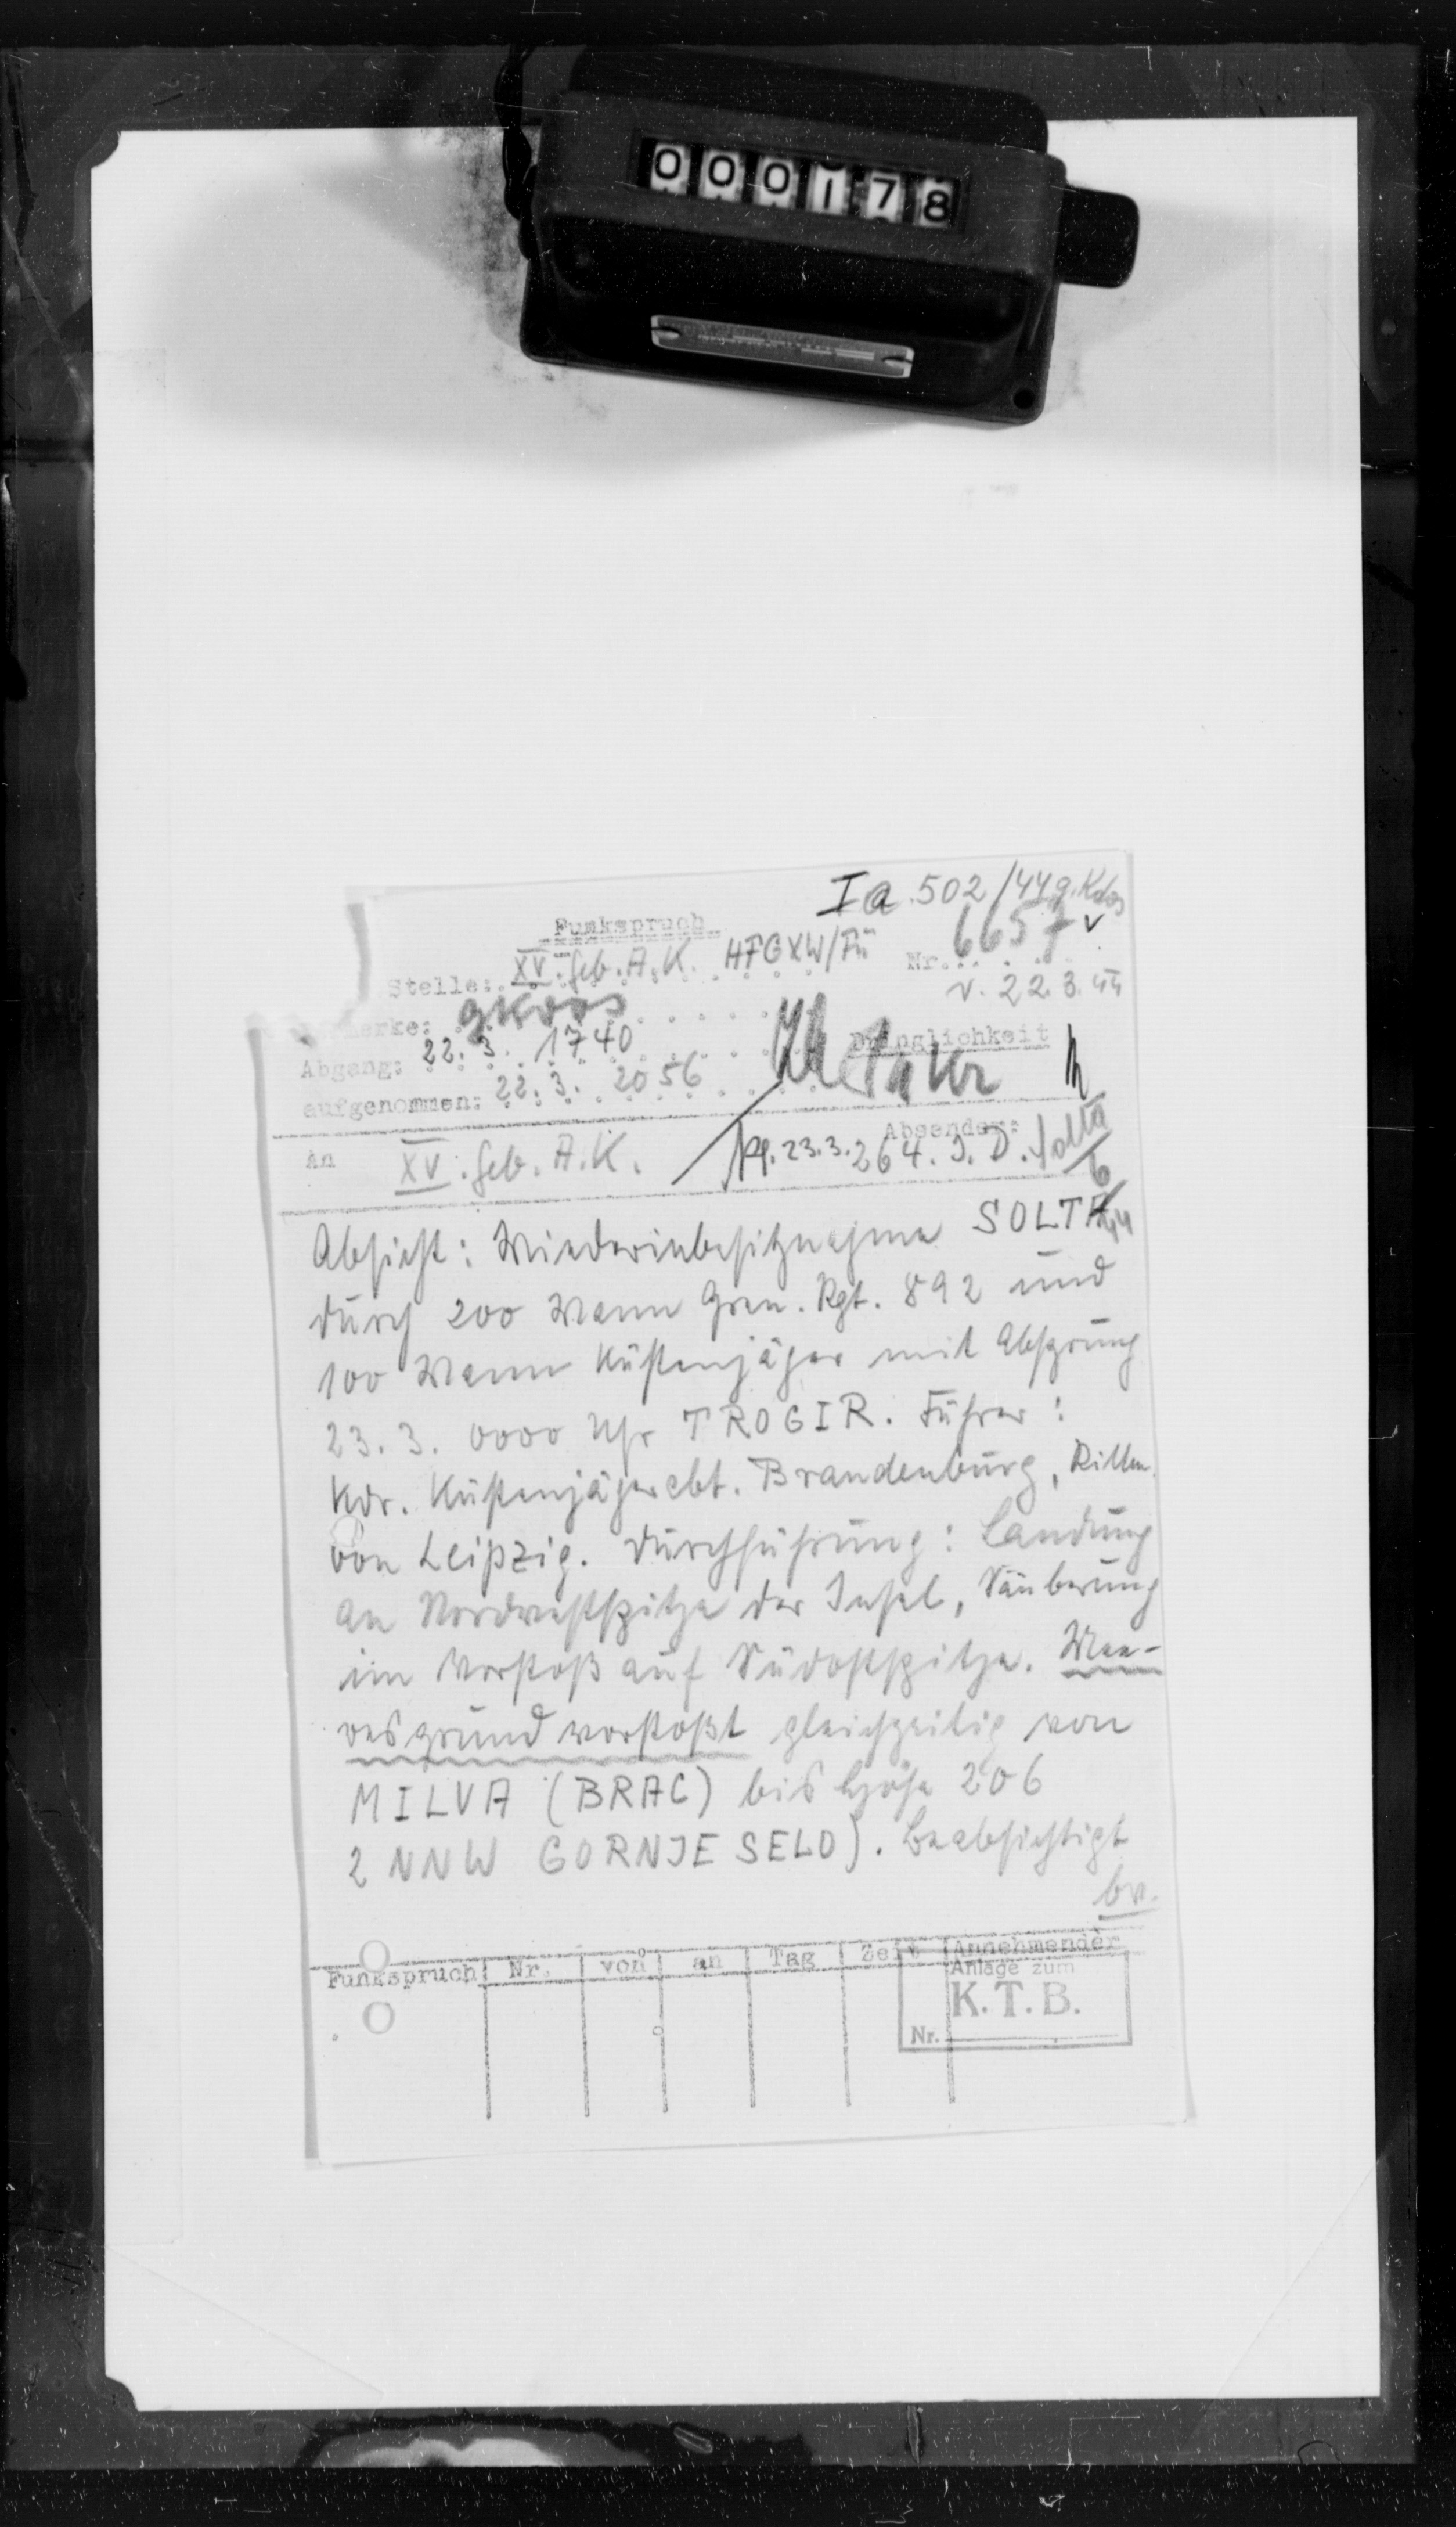 000178
Ia 502/44 g.Kdos
Funkspruch
Stelle: XV. Geb. A.K. HFGXW/Fü Nr. 6657
v. 22.3.44
gKdos
Abgang: 22. 3. 1740 Dringlichkeit
aufgenommen: 22. 3. 2056
Absender:
An XV. Geb. A.K. 23.3. 264. I.D. Solta
Absicht: Wiederinbesitznahme SOLTA
durch 200 Mann Gren. Rgt. 892 und
100 Mann Küstenjäger mit Absprung
23. 3. 0000 Uhr TROGIR. Führer:
Kdr. Küstenjägerabt. Brandenburg, Rittm.
von Leipzig. Durchführung: Landung
an Nordwestspitze der Insel, Säuberung
im Vorstoß auf Südostspitze. Mee-
resgrund vorstoßt gleichzeitig von
MILVA (BRAC) bis Höhe 206
2 NNW GORNJE SELO). Beabsichtigt
Funkspruch Nr. von an Tag Zeit Annehmender
Anlage zum
K.T.B.
Nr.